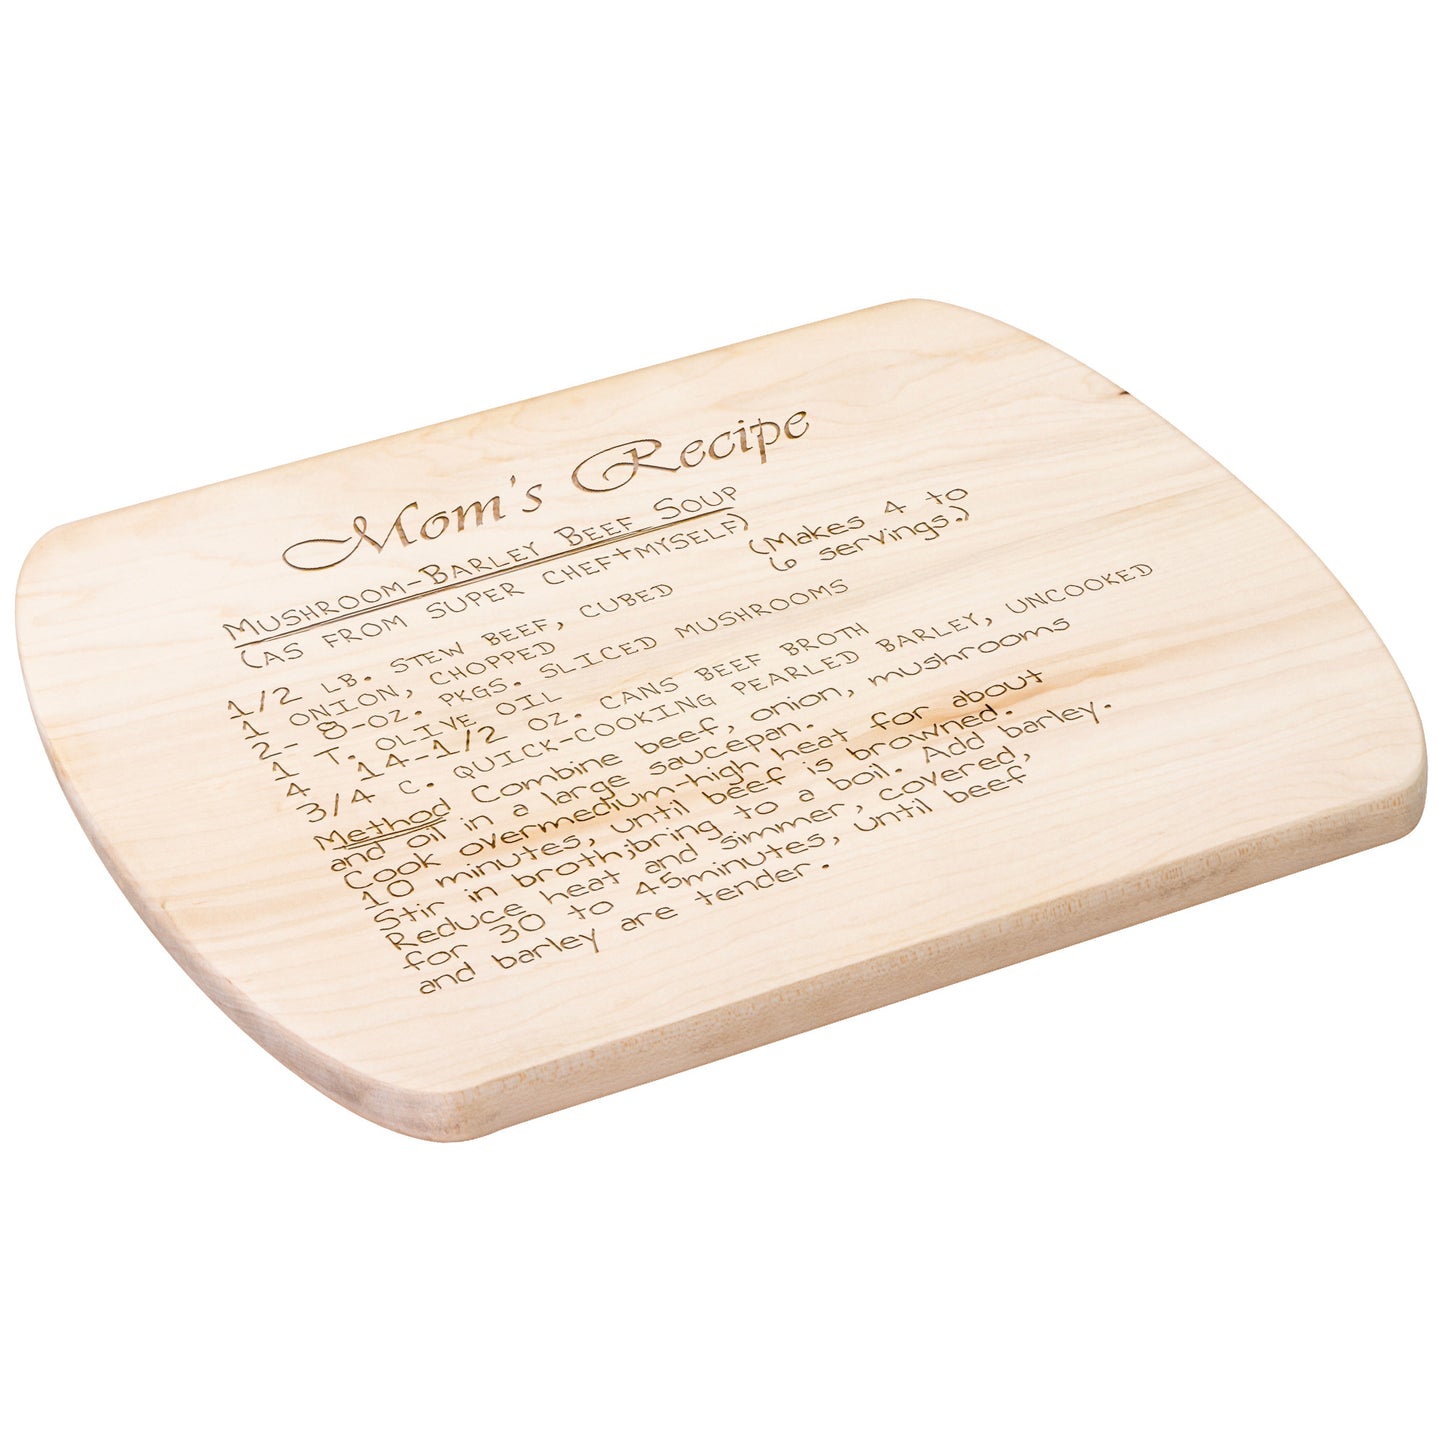 Mom's Recipe
MUSHROOM-BARLEY BEEF SOUP
(AS FROM SUPER CHEF+MYSELF)
(Makes 4 to
6 servings.)
1/2 LB. STEW BEEF, CUBED
1 ONION, CHOPPED
2- 8-OZ. PKGS. SLICED MUSHROOMS
1 T. OLIVE OIL
4 14-1/2 OZ. CANS BEEF BROTH
3/4 C. QUICK-COOKING PEARLED BARLEY, UNCOOKED
Method Combine beef, onion, mushrooms
and oil in a large saucepan.
Cook overmedium-high heat for about
10 minutes, until beef is browned.
Stir in broth;bring to a boil. Add barley.
Reduce heat and simmer, covered,
for 30 to 45minutes, until beef
and barley are tender.